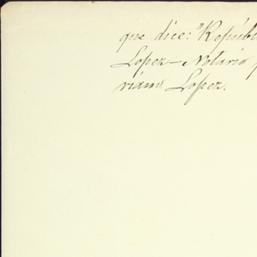 que dice: "Repúbl
Lopez – Notario p
riano Lopez.